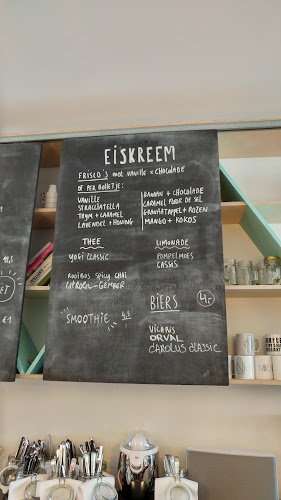 EiSKREEM
FRISCO'S met VANILLE & CHOCOLADE
OF PER BOLLETJE:
VANILLE
STRACCIATELLA
THYM + CARAMEL
LAVENDEL + HONING
BANAAN + CHOCOLADE
CARAMEL FLEUR DE SEL
GRANAATAPPEL + ROZEN
MANGO + KOKOS
THEE
YOGI CLASSIC
ROOIBOS SPICY CHAI
CITROEN-GEMBER
LIMONADE
POMPELMOES
CASSIS
SMOOTHIE
BIERS
4,-
VICARIS
ORVAL
CAROLUS CLASSIC
€1